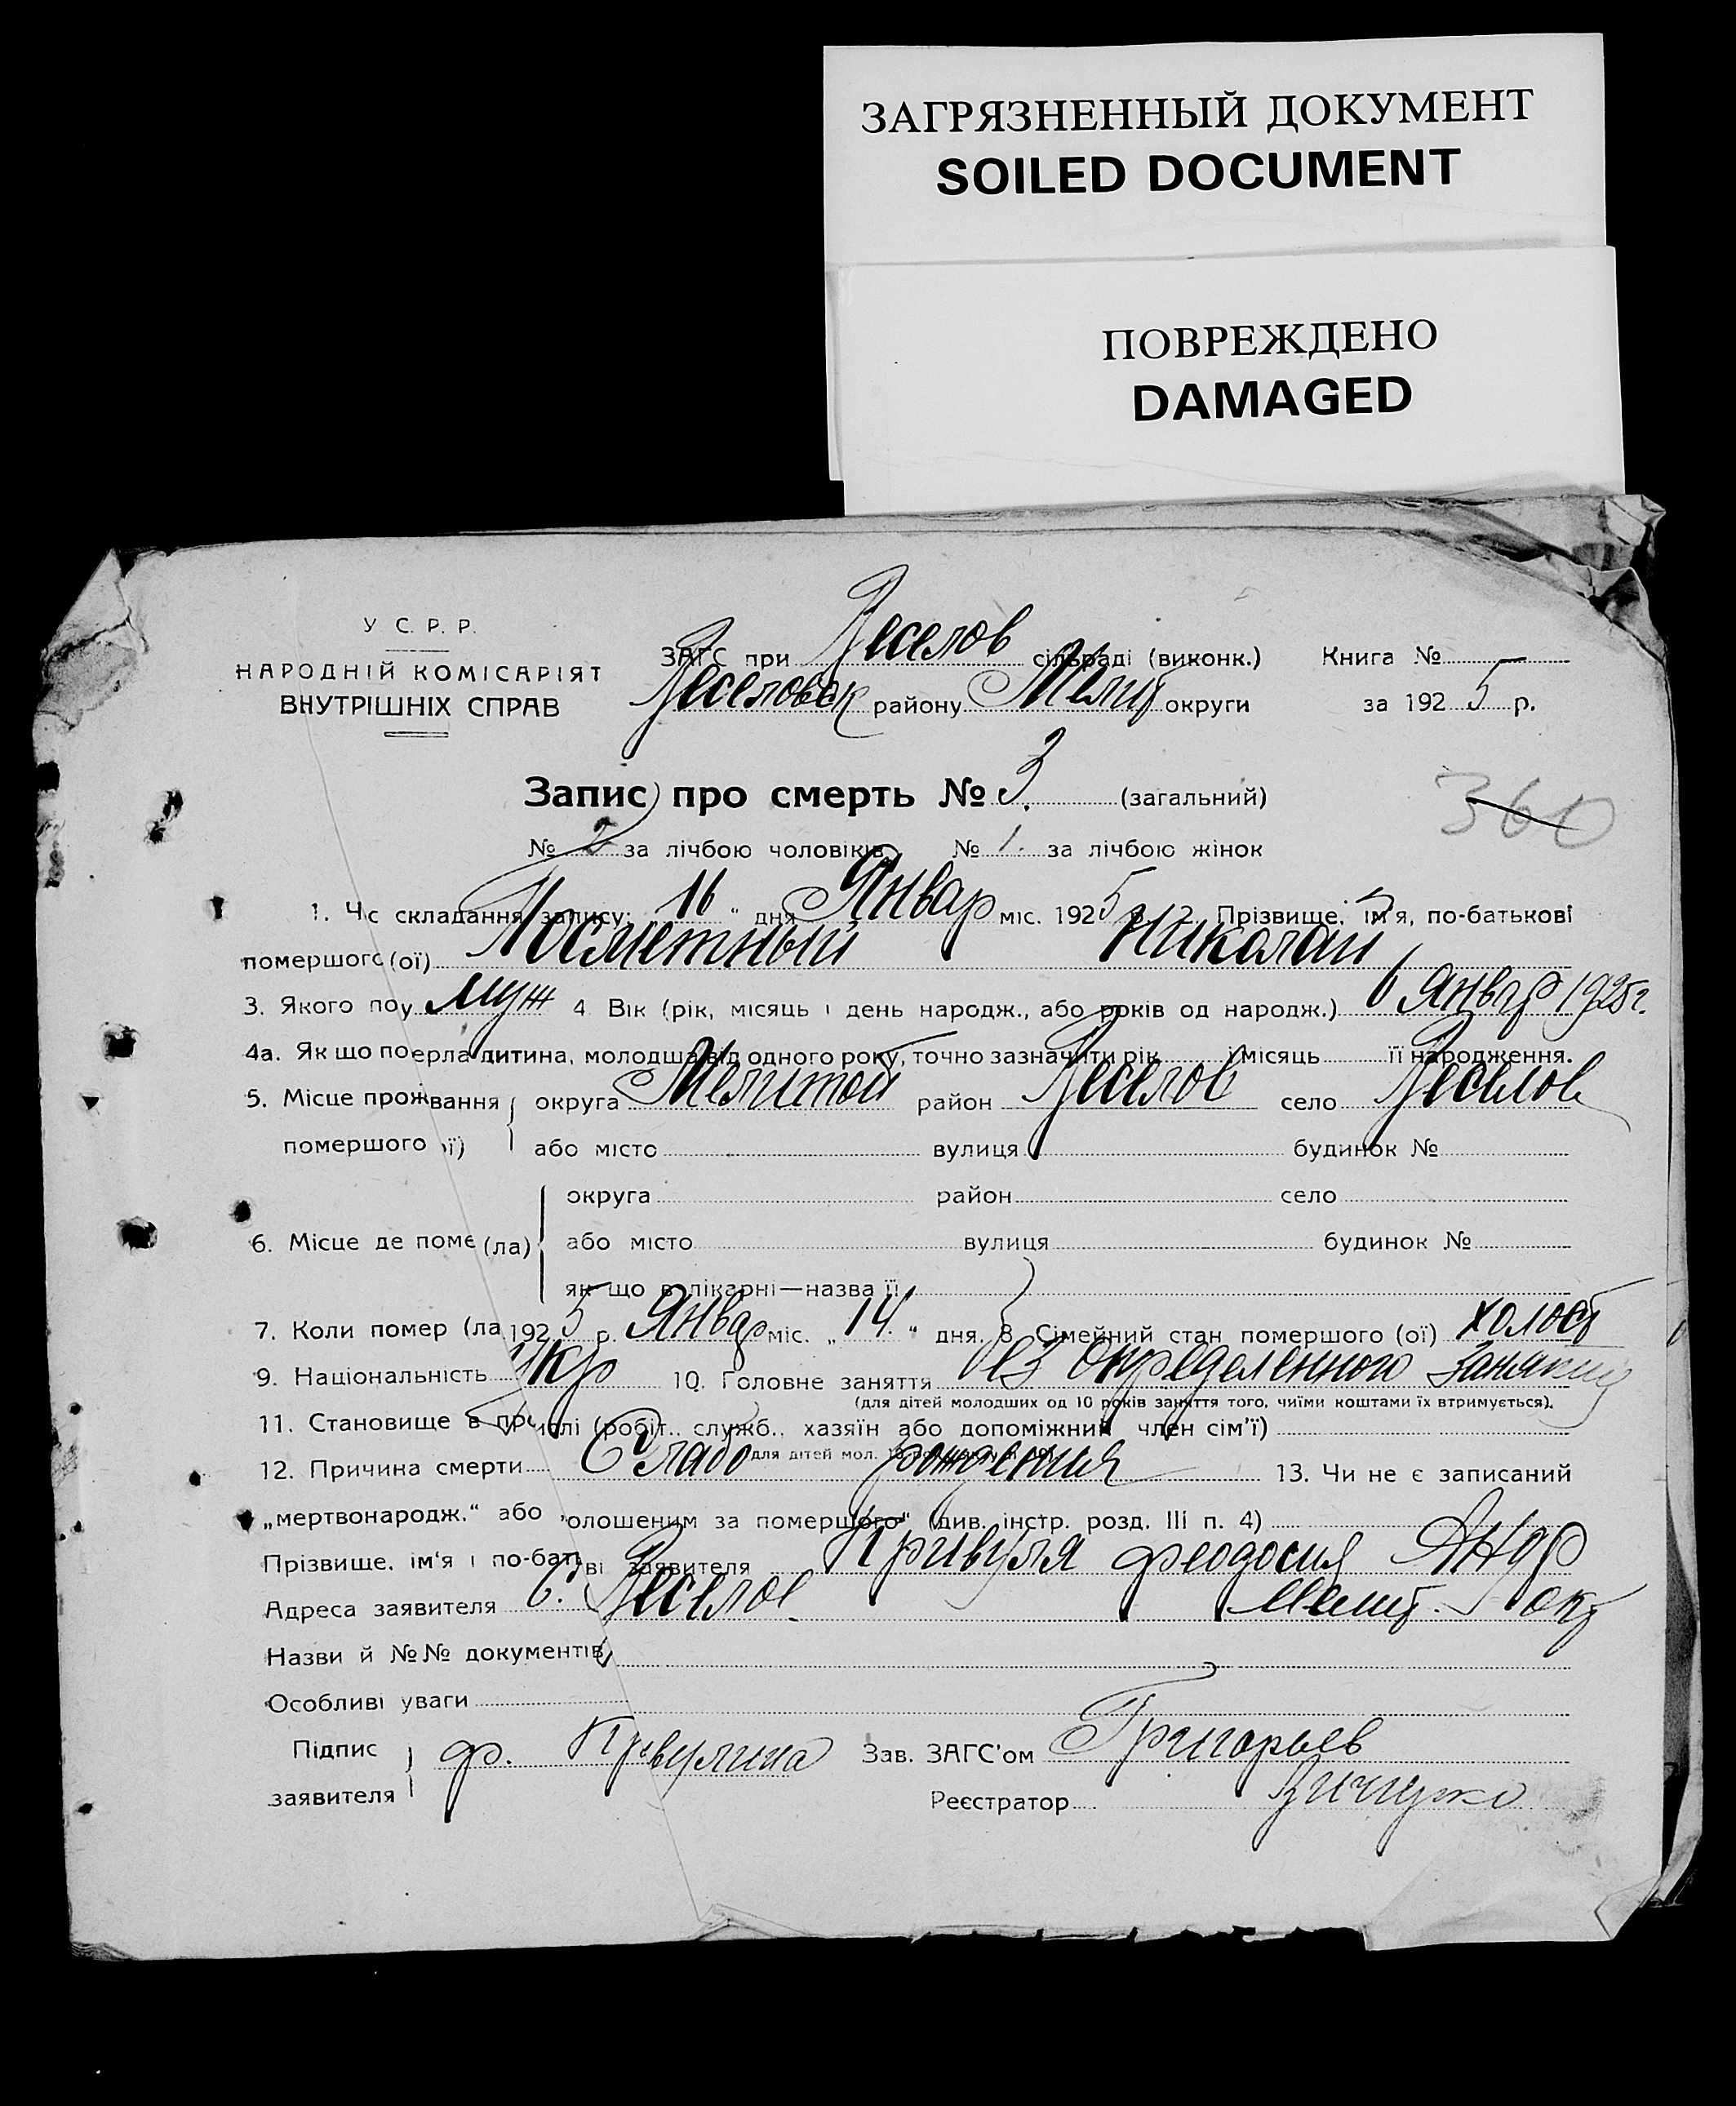 ЗАГРЯЗНЕННЫЙ ДОКУМЕНТ
SOILED DOCUMENT
ПОВРЕЖДЕНО
DAMAGED
У С. Р. Р.
НАРОДНІЙ КОМІСАРІЯТ
ВНУТРІШНІХ СПРАВ
ЗАГС при Веселов сільраді (виконк.) Книга №
Веселовск району Мелит округи за 1925 р.
Запис про смерть № 3. (загальний)
360
№ 2 за лічбою чоловіків № 1. за лічбою жінок
1. Ч с складання запису: 16 " дня Январ міс. 1925 р. 2. Прізвище, ім'я, по-батькові
помершого (ої) Посметный Николай
3. Якого по у муж 4. Вік (рік, місяць і день народж., або років од народж.) 6 Январ 1925 г.
4а. Як що по ерла дитина, молодша від одного року, точно зазначити рік і місяць її народження.
5. Місце прожвання округа Мелитоп район Веселов село Веселов
помершого ої) або місто вулиця будинок №
округа район село
6. Місце де поме (ла) або місто вулиця будинок №
як що в лікарні—назва її
7. Коли помер (ла 1925 р. Январ міс. „14." дня. 8. Сімейний стан помершого (ої) холост
9. Національність Укр 10. Головне заняття без определенного занятия
(для дітей молодших од 10 років заняття того, чиїми коштами їх втримується).
11. Становище в пр ислі (робіт., служб., хазяїн або допоміжний член сім'ї)
для дітей мол.
12. Причина смерти Слабо рождения 13. Чи не є записаний
„мертвонародж." або „олошеним за помершого" (див. інстр. розд. III п. 4)
Прізвище, ім'я і по-бать ві заявителя Кривуля Феодосия Андр
Адреса заявителя с. Веселое Мелит. окр
Назви й №№ документів
Особливі уваги
Підпис ф. Кривулина Зав. ЗАГС'ом Григорьев
заявителя Реєстратор